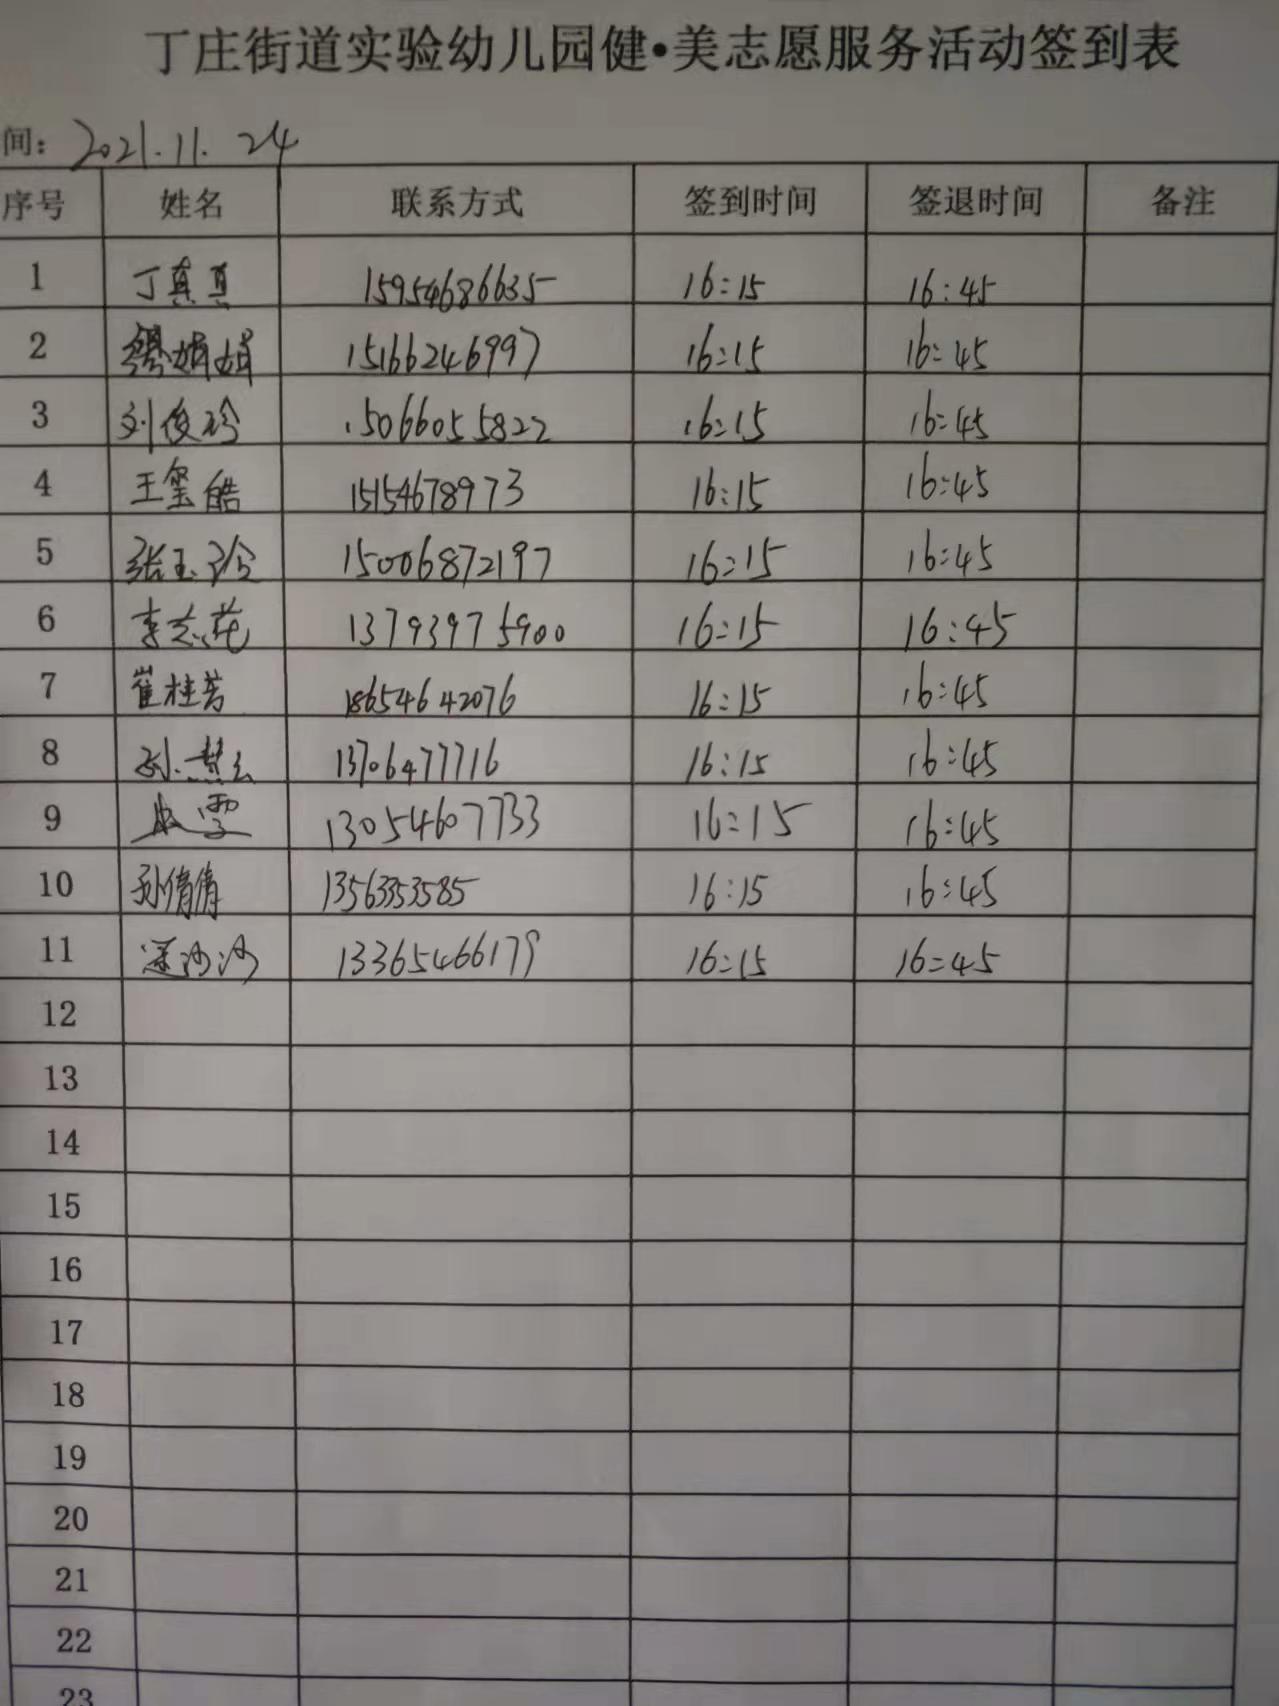 丁庄街道实验幼儿园健·美志愿服务活动签到表
间: 2021.11.24
序号 姓名 联系方式 签到时间 签退时间 备注
1 丁真真 15954686635 16:15 16:45
2 缪娟娟 15166246997 16:15 16:45
3 刘俊玲 15066055822 16:15 16:45
4 王玺皓 15154678973 16:15 16:45
5 张玉玲 15006872197 16:15 16:45
6 李志花 13793975900 16:15 16:45
7 崔桂芳 18654642076 16:15 16:45
8 13706477716 16:15 16:45
9 13054607733 16:15 16:45
10 孙倩倩 16:15 16:45
11 13365466179 16:15 16:45
12
13
14
15
16
17
18
19
20
21
22
23